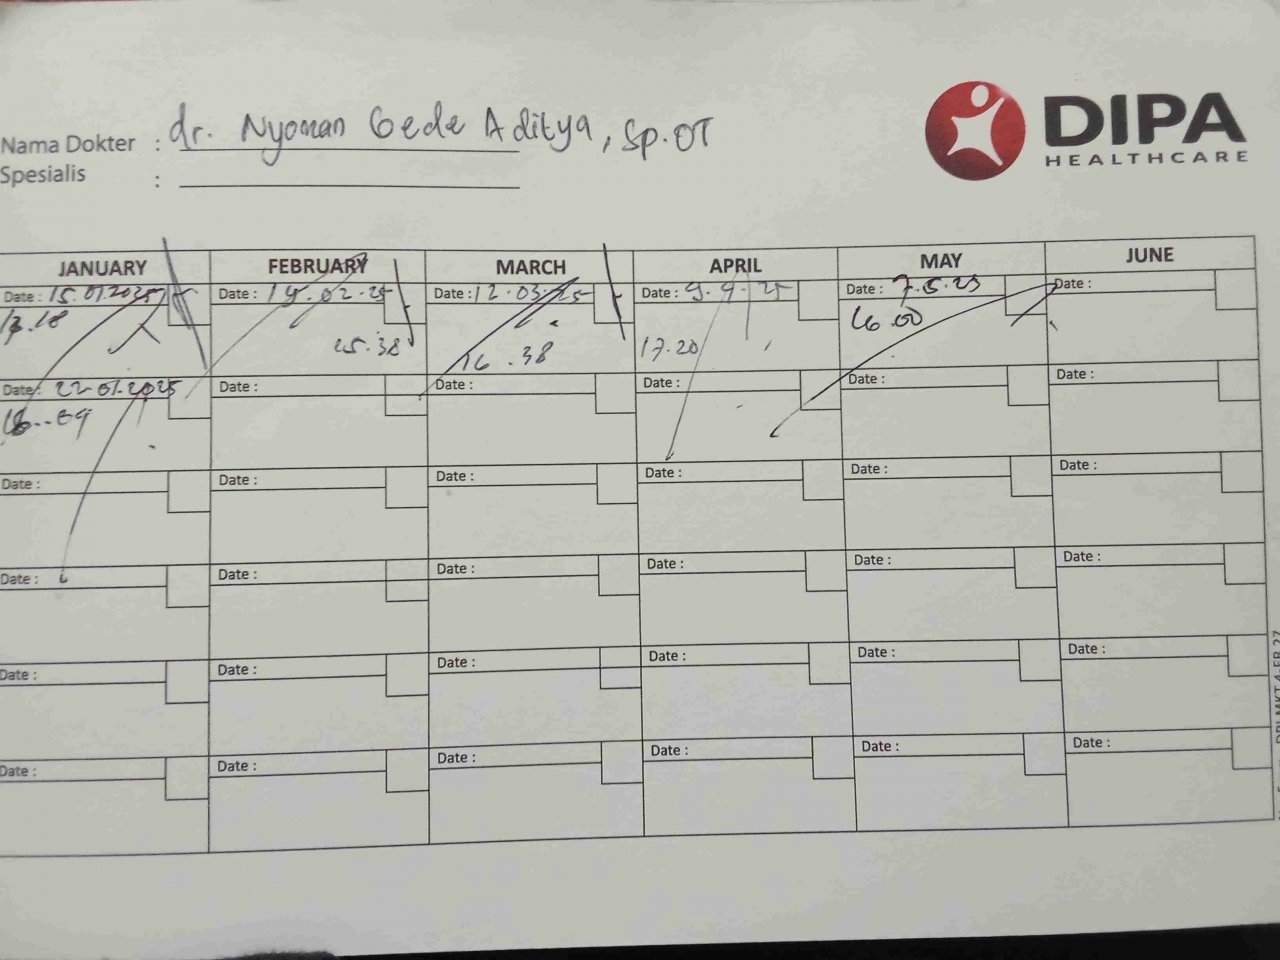 DIPA
HEALTHCARE
Nama Dokter : dr. Nyoman Gede Aditya, Sp.OT
Spesialis :
JANUARY FEBRUARY MARCH APRIL MAY JUNE
Date : 15.01.2025 Date : 19.02.25 Date : 12.03.25 Date : 9.4.25 Date : 7.5.25 Date :
15.38 16.38 17.20 16.00
Date : 22.01.2025 Date : Date : Date : Date : Date :
Date : Date : Date : Date : Date : Date :
Date : Date : Date : Date : Date : Date :
Date : Date : Date : Date : Date : Date :
Date : Date : Date : Date : Date : Date :